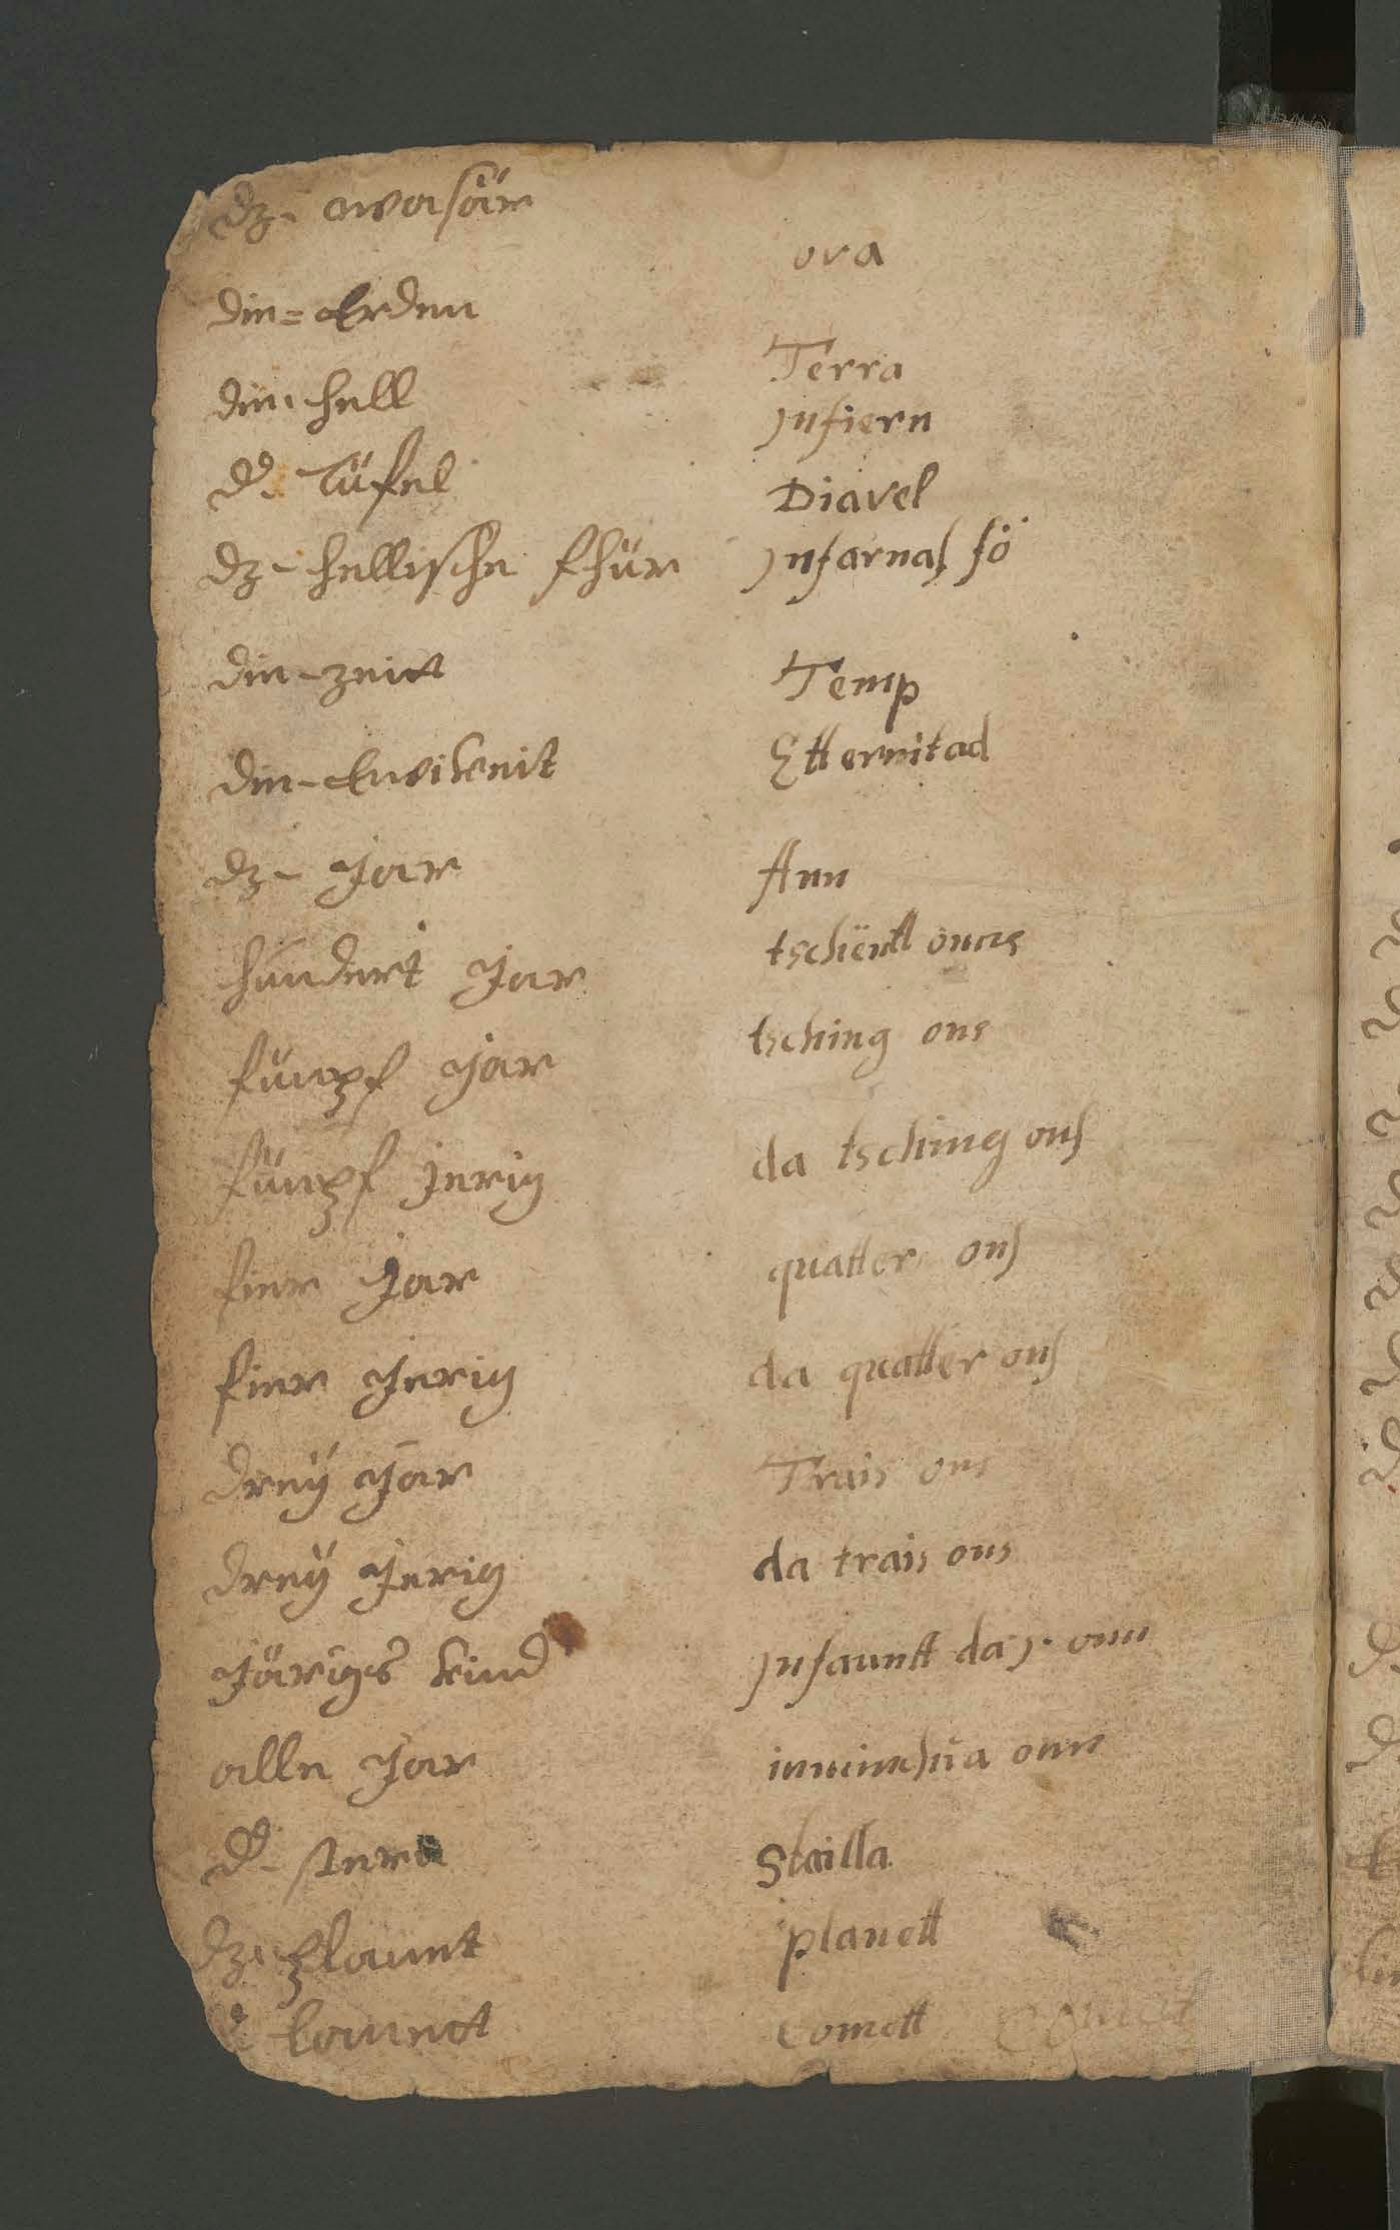 dz- wasär
ova
die= Erden
Terra
die- hell
jnfiern
d. Tüfel
Diavel
dz- hellische fhür jnfarnal fö
die- zeitt
Temp
die- Ewikeit
Etternitad
dz- Jar
Ann
hundert Jar
tschientt onns
fünpf Jar
tsching ons
fünpf jerig
da tsching ons
fier Jar
quatter ons
fier Jerig
da quatter ons
dreÿ Jar
Trais ons
dreÿ Jerig
da trais ons
Järigs kind
jnfauntt da j. onn
alle Jar
onn
d- stern
Stailla
dz- planet
planett
Comett
Comett